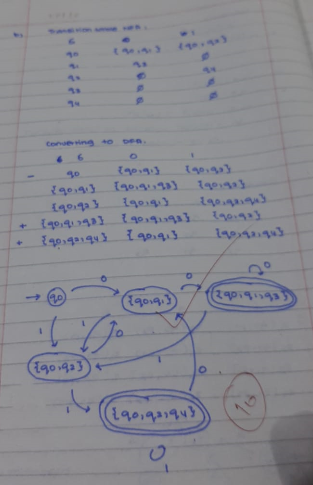 b) Transition table NFA.
δ 0 1
q0 {q0,q1} {q0,q2}
q1 q3 ∅
q2 ∅ q4
q3 ∅ ∅
q4 ∅ ∅
Converting to DFA.
δ 0 1
- q0 {q0,q1} {q0,q2}
{q0,q1} {q0,q1,q3} {q0,q2}
{q0,q2} {q0,q1} {q0,q2,q4}
+ {q0,q1,q3} {q0,q1,q3} {q0,q2}
+ {q0,q2,q4} {q0,q1} {q0,q2,q4}
0 0 0
q0 {q0,q1} {q0,q1,q3}
1 1 0
{q0,q2} 1 0
1 {q0,q2,q4} 10
1